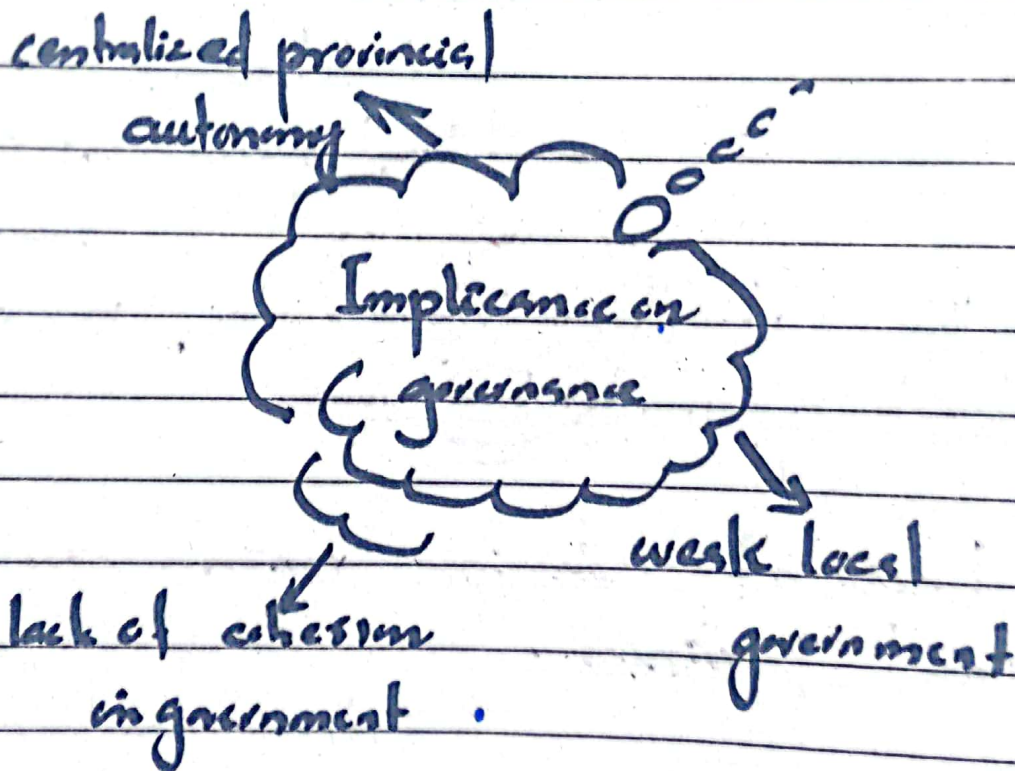 centralized provincial
autonomy
Implicance on
governance
weak local
government
lack of cohesion
in government